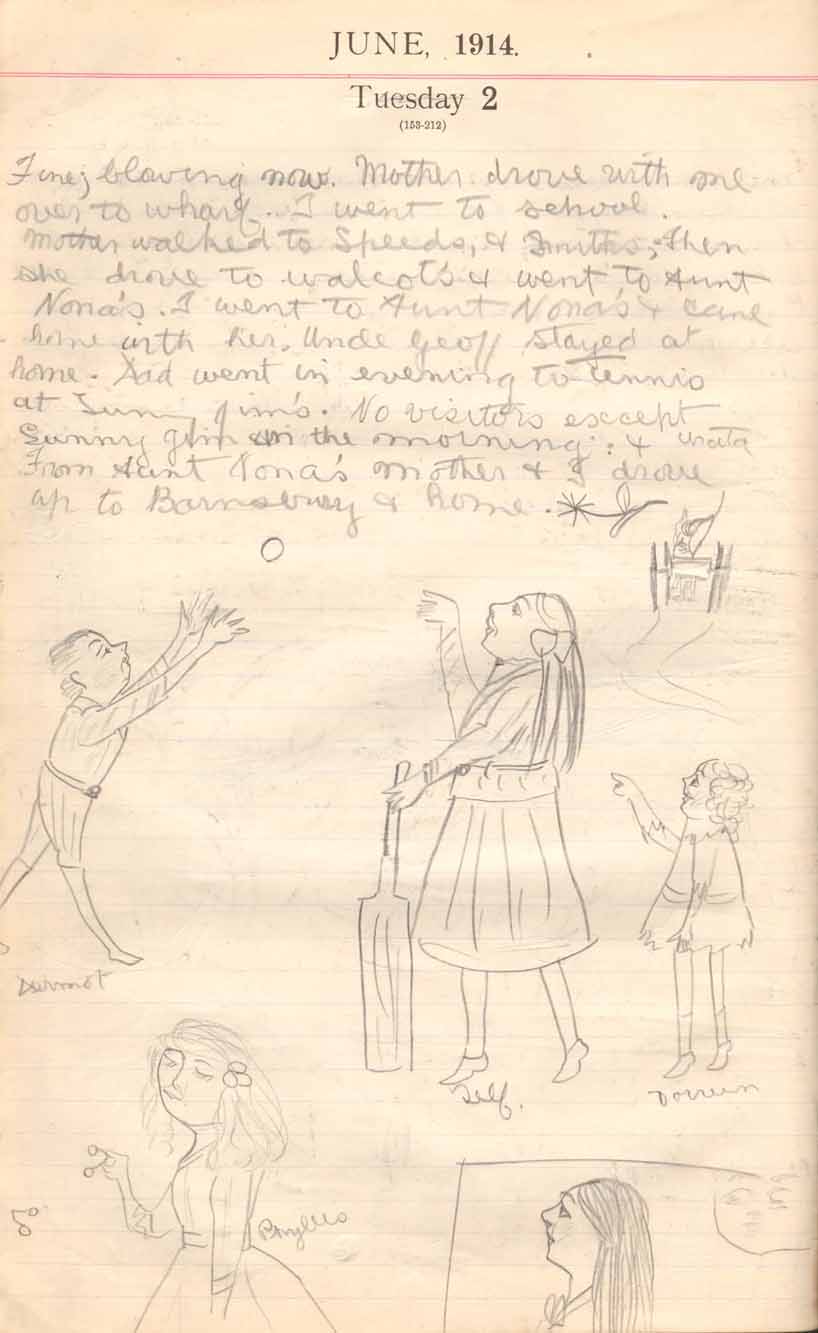 JUNE, 1914.
Tuesday 2
(153-212)
Fine; blowing now. Mother drove with me
over to wharf. I went to school.
Mother walked to Speeds, & Smiths; then
she drove to walcot's & went to Aunt
Nona's. I went to Aunt Nona's & came
home with her. Uncle Geoff stayed at
home. Dad went in evening to tennis
at Sunny Jim's. No visitors except
Sunny Jim in the morning. &
From Aunt Nona's mother & I drove
up to Barnsbury & home.
Dermot
Self.
Dorreen
Phyllis